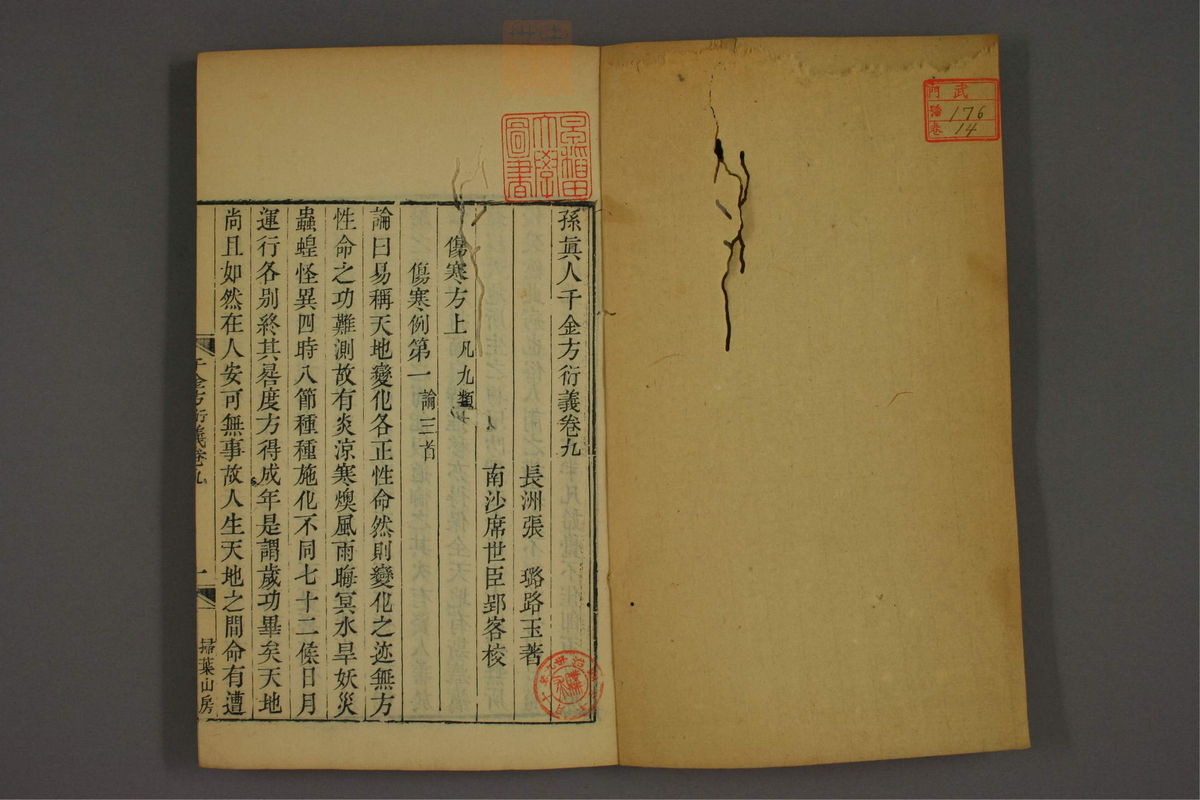 武
門
176
卷
14
早稲田
大學
圖書
孫眞人千金方衍義卷九
長洲張　璐路玉著
南沙席世臣郢客校
傷寒方上 凡九類
傷寒例第一 論三首
論曰易稱天地變化各正性命然則變化之迹無方
性命之功難測故有炎涼寒燠風雨晦冥水旱妖災
蟲蝗怪異四時八節種種施化不同七十二候日月
運行各别終其晷度方得成年是謂歲功畢矣天地
尚且如然在人安可無事故人生天地之間命有遭
千金方衍義卷九
一
掃葉山房